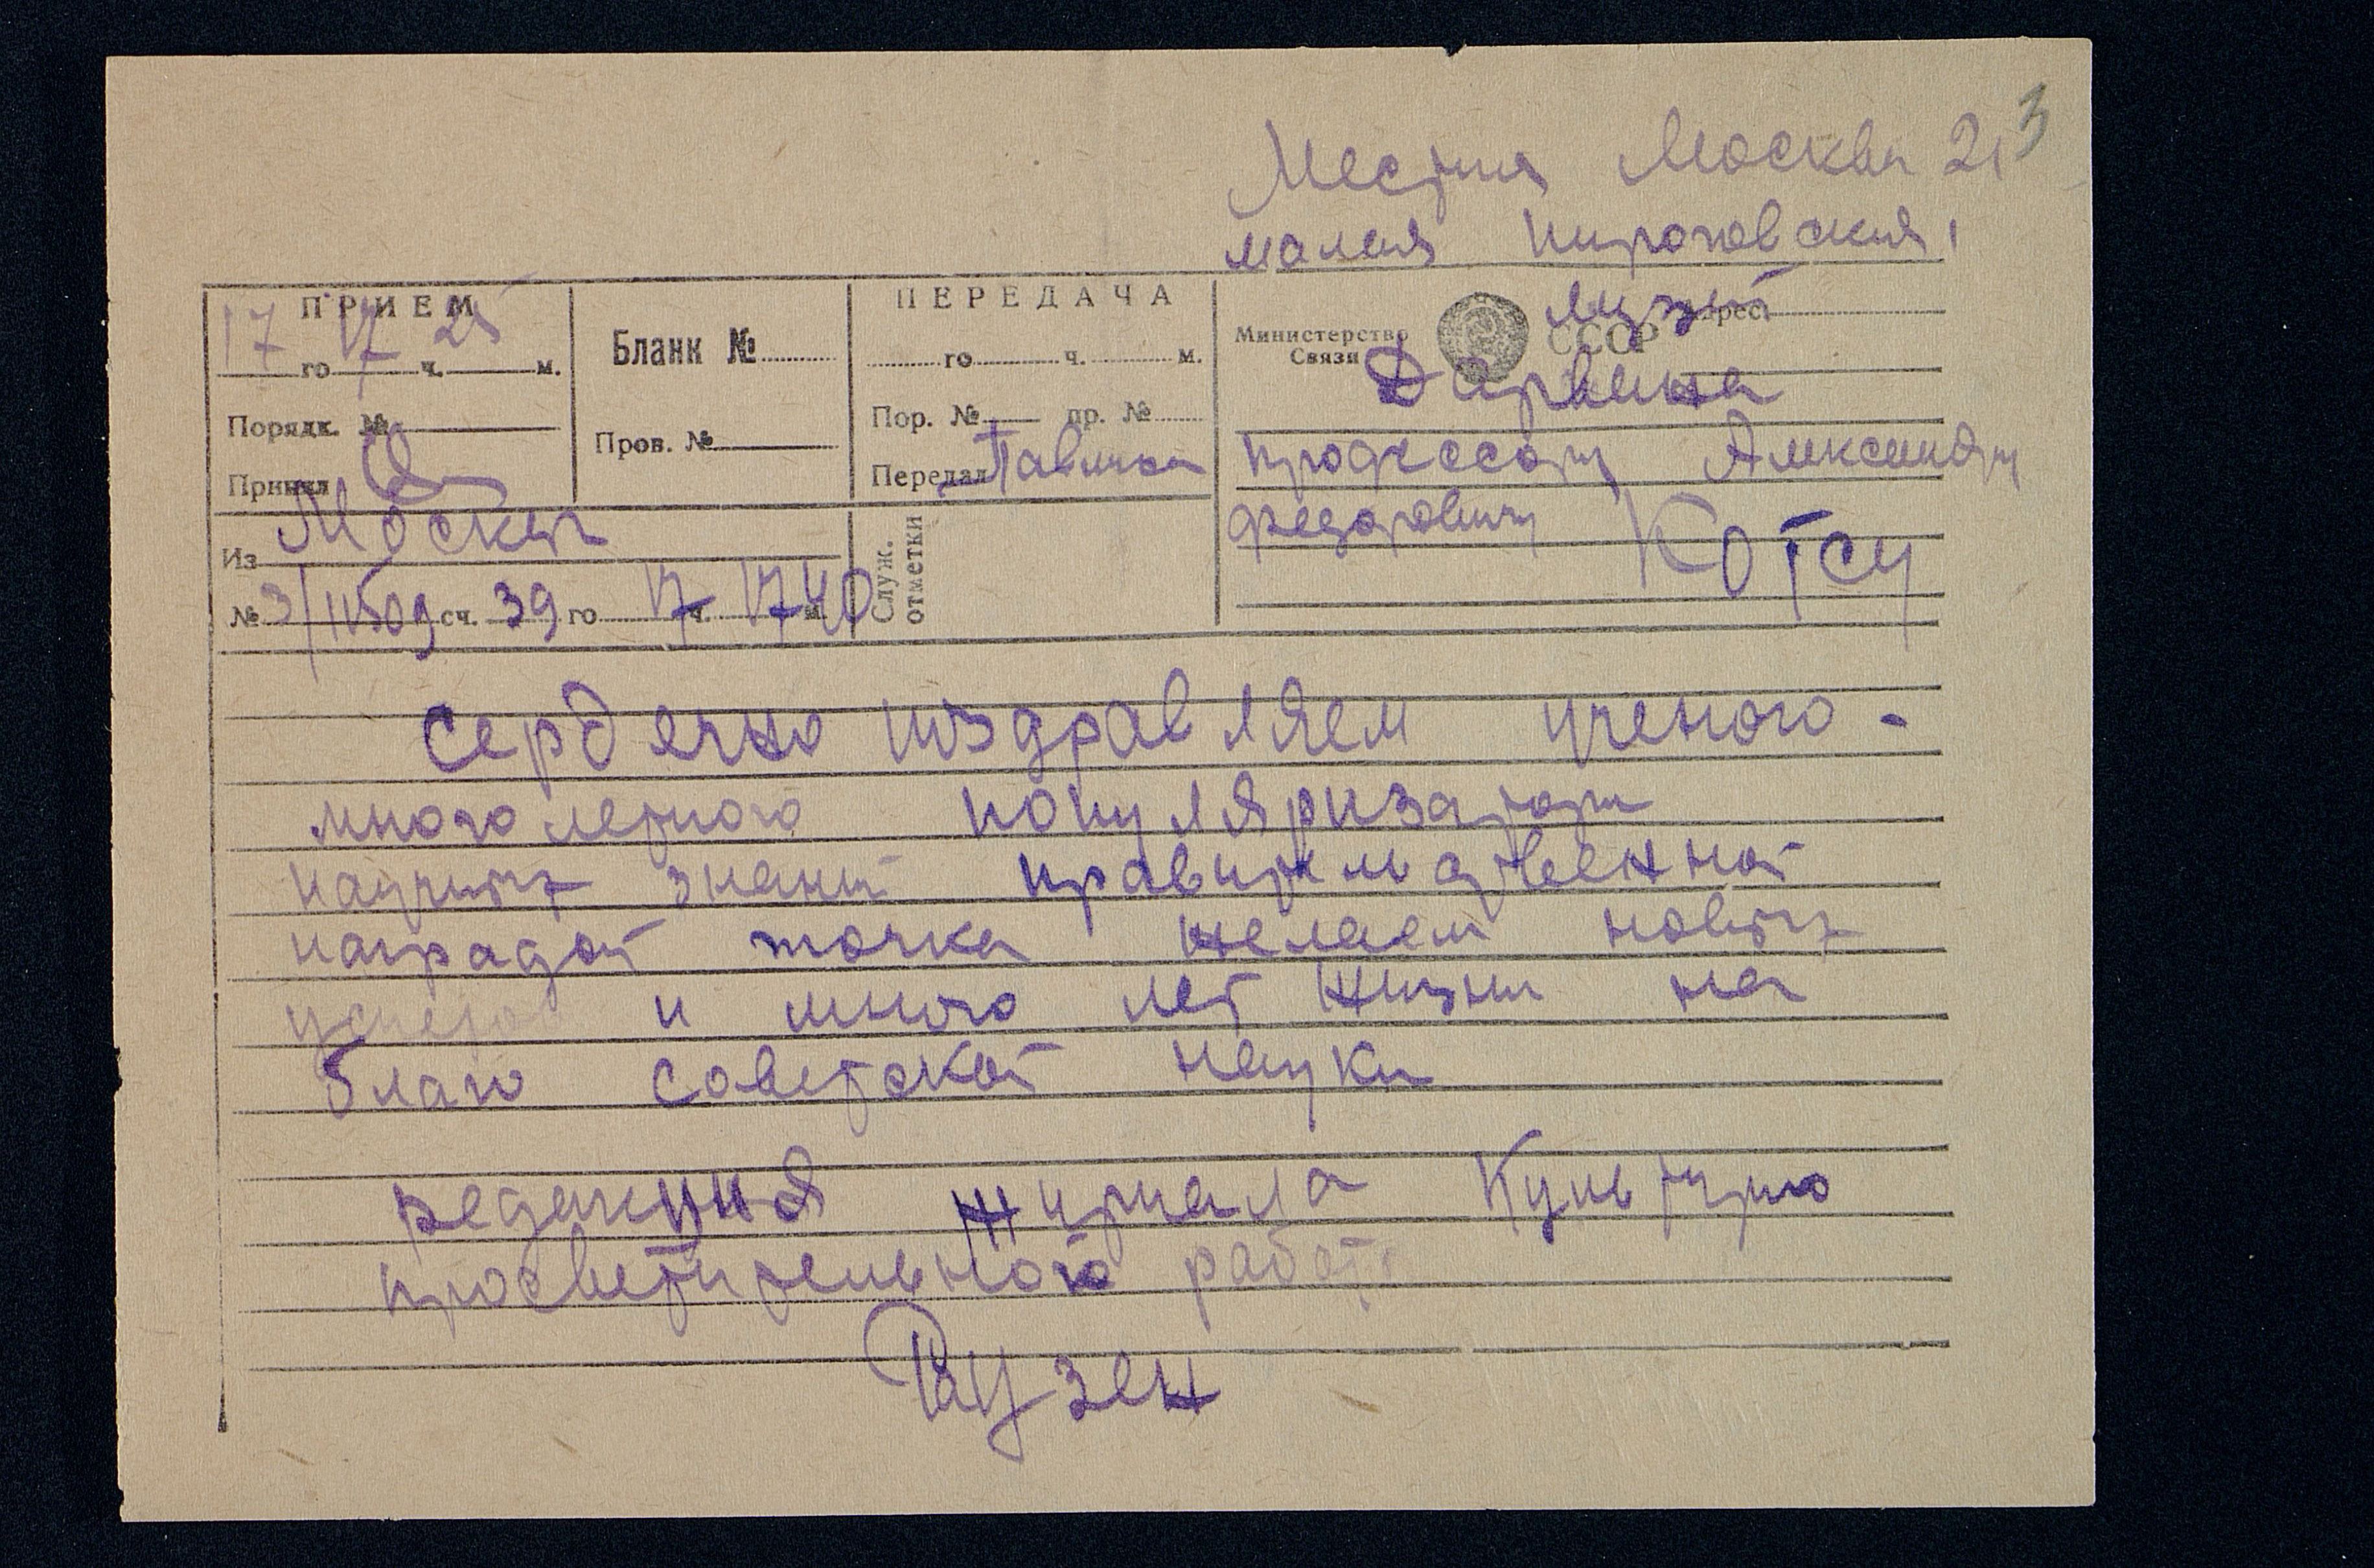 3
Местная Москва 2,
малая пироговская,
музей
Дарвина
профессору Александру
федоровичу Котсу
Министерство Связи СССР Адрес
ПРИЕМ
17 го 17 ч. 25 м.
Порядк. №
Принял
Бланк №
Пров. №
ПЕРЕДАЧА
го ч. м.
Пор. № пр. №
Передал
Из Москвы
№ 3/11509 сч. 39 го 17 ч. 1740 м.
Служ. отметки
Сердечно поздравляем ученого -
многолетного популяризатора
научных знаний правительственной
наградой точка желаем новых
успехов и много лет жизни на
благо советской науки
редакция журнала Культурно
просветительного работа
Раузен